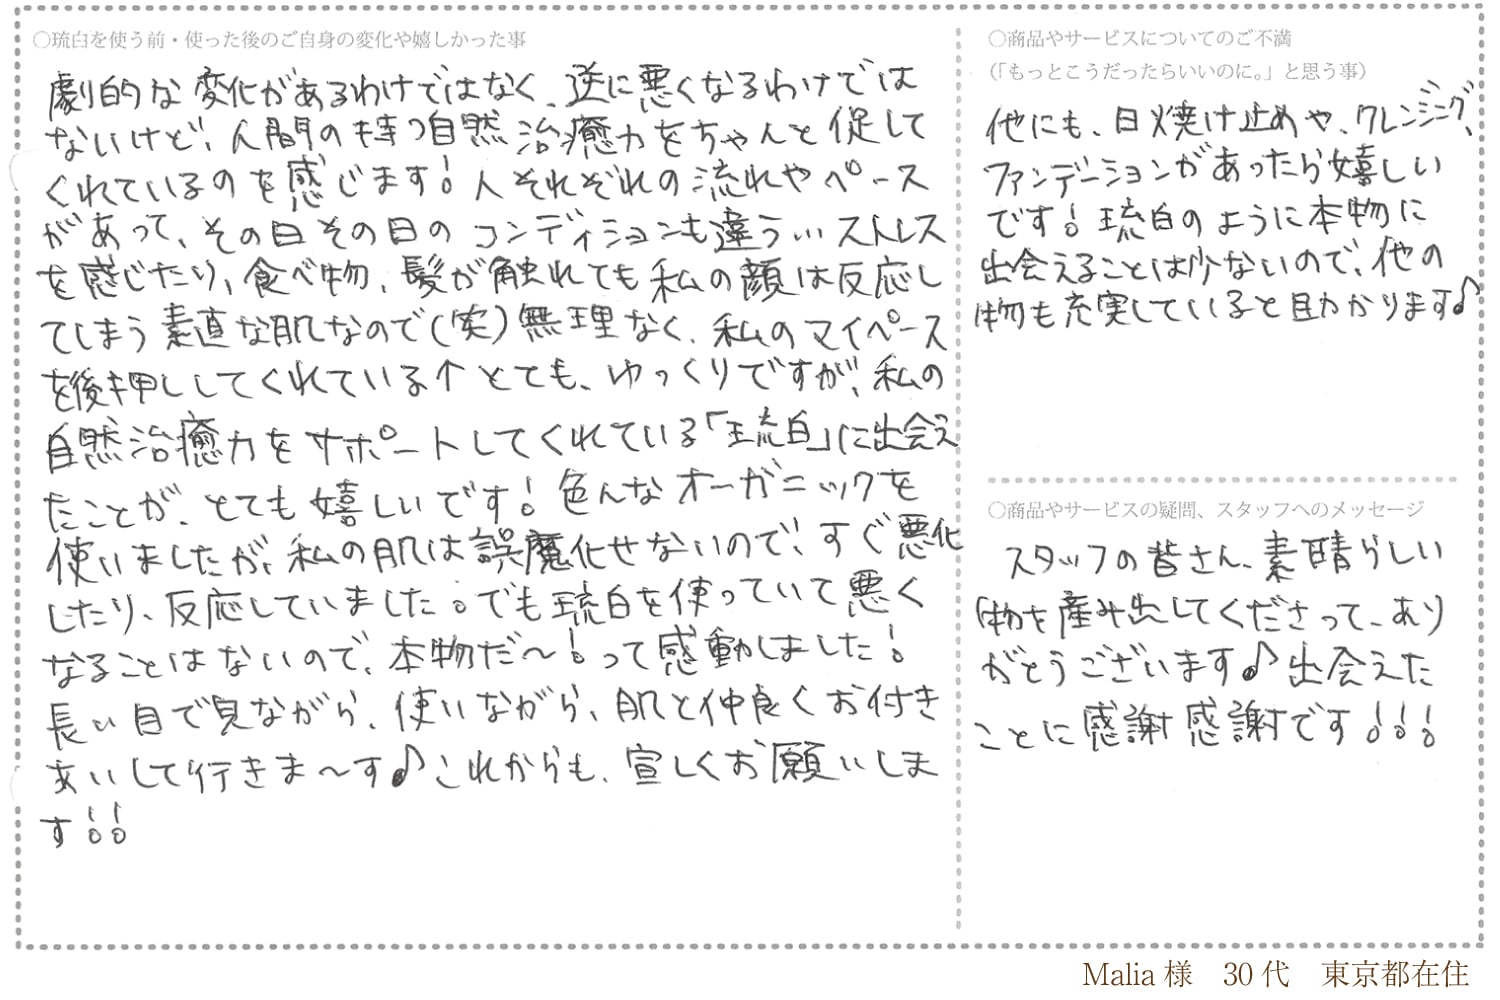 ○琉白を使う前・使った後のご自身の変化や嬉しかった事
劇的な変化があるわけではなく、逆に悪くなるわけでは
ないけど、人間の持つ自然治癒力をちゃんと促して
くれているのを感じます!人それぞれの流れやペース
があって、その日その日のコンディションも違うし、ストレス
を感じたり、食べ物、髪が触れても私の顔は反応し
てしまう素直な肌なので(笑)無理なく、私のマイペース
を後押ししてくれている↑とても、ゆっくりですが、私の
自然治癒力をサポートしてくれている「琉白」に出会え
たことが、とても嬉しいです!色んなオーガニックを
使いましたが、私の肌は誤魔化せないので、すぐ悪化
したり、反応していました。でも琉白を使っていて悪く
なることはないので、本物だ〜!って感動しました!
長い目で見ながら、使いながら、肌と仲良くお付き
あいして行きま〜す♪これからも、宜しくお願いしま
す!!
○商品やサービスについてのご不満
(「もっとこうだったらいいのに。」と思う事)
他にも、日焼け止めや、クレンジング、
ファンデーションがあったら嬉しい
です!琉白のように本物に
出会えることは少ないので、他の
物も充実していると助かります♪
○商品やサービスの疑問、スタッフへのメッセージ
スタッフの皆さん、素晴らしい
物を産み出してくださって、あり
がとうございます♪出会えた
ことに感謝感謝です!!!
Malia 様 30 代 東京都在住